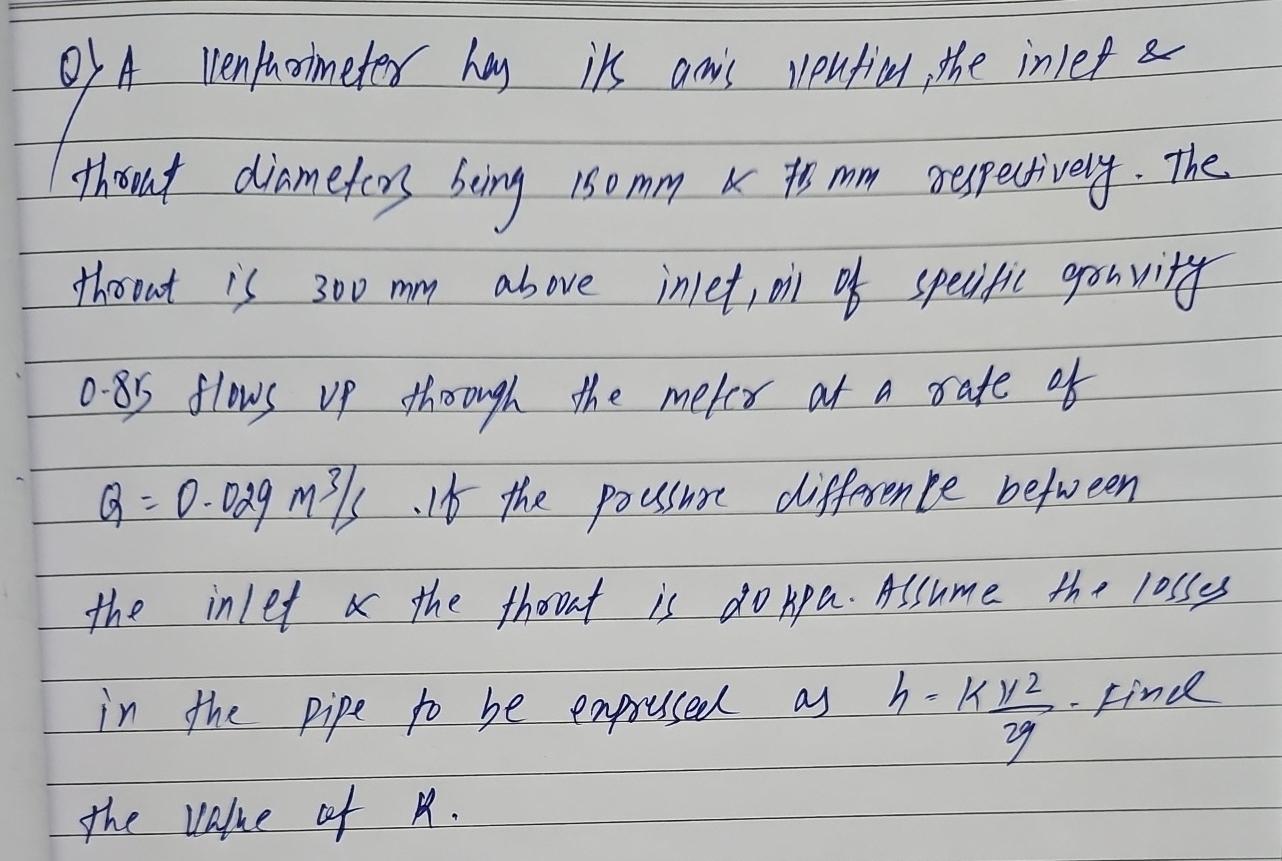 Q) A venturimeter has its axis vertical, the inlet &
throat diameters being 150 mm & 75 mm respectively. The
throat is 300 mm above inlet, oil of specific gravity
0.85 flows up through the meter at a rate of
Q = 0.029 m³/s. If the pressure difference between
the inlet & the throat is 20 kpa. Assume the losses
in the pipe to be expressed as h = K V²/2g. Find
the value of K.